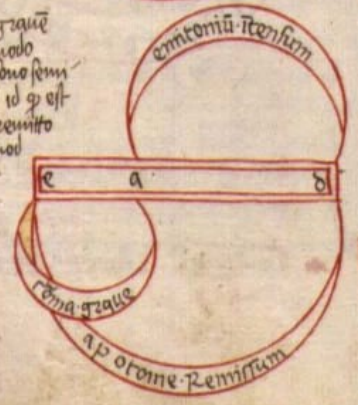 grauē
modo
ono semi
id ꝙ est
remitto
mod
emitoniū· Itensum
e a d
cōma·graue
apotome·Remissum